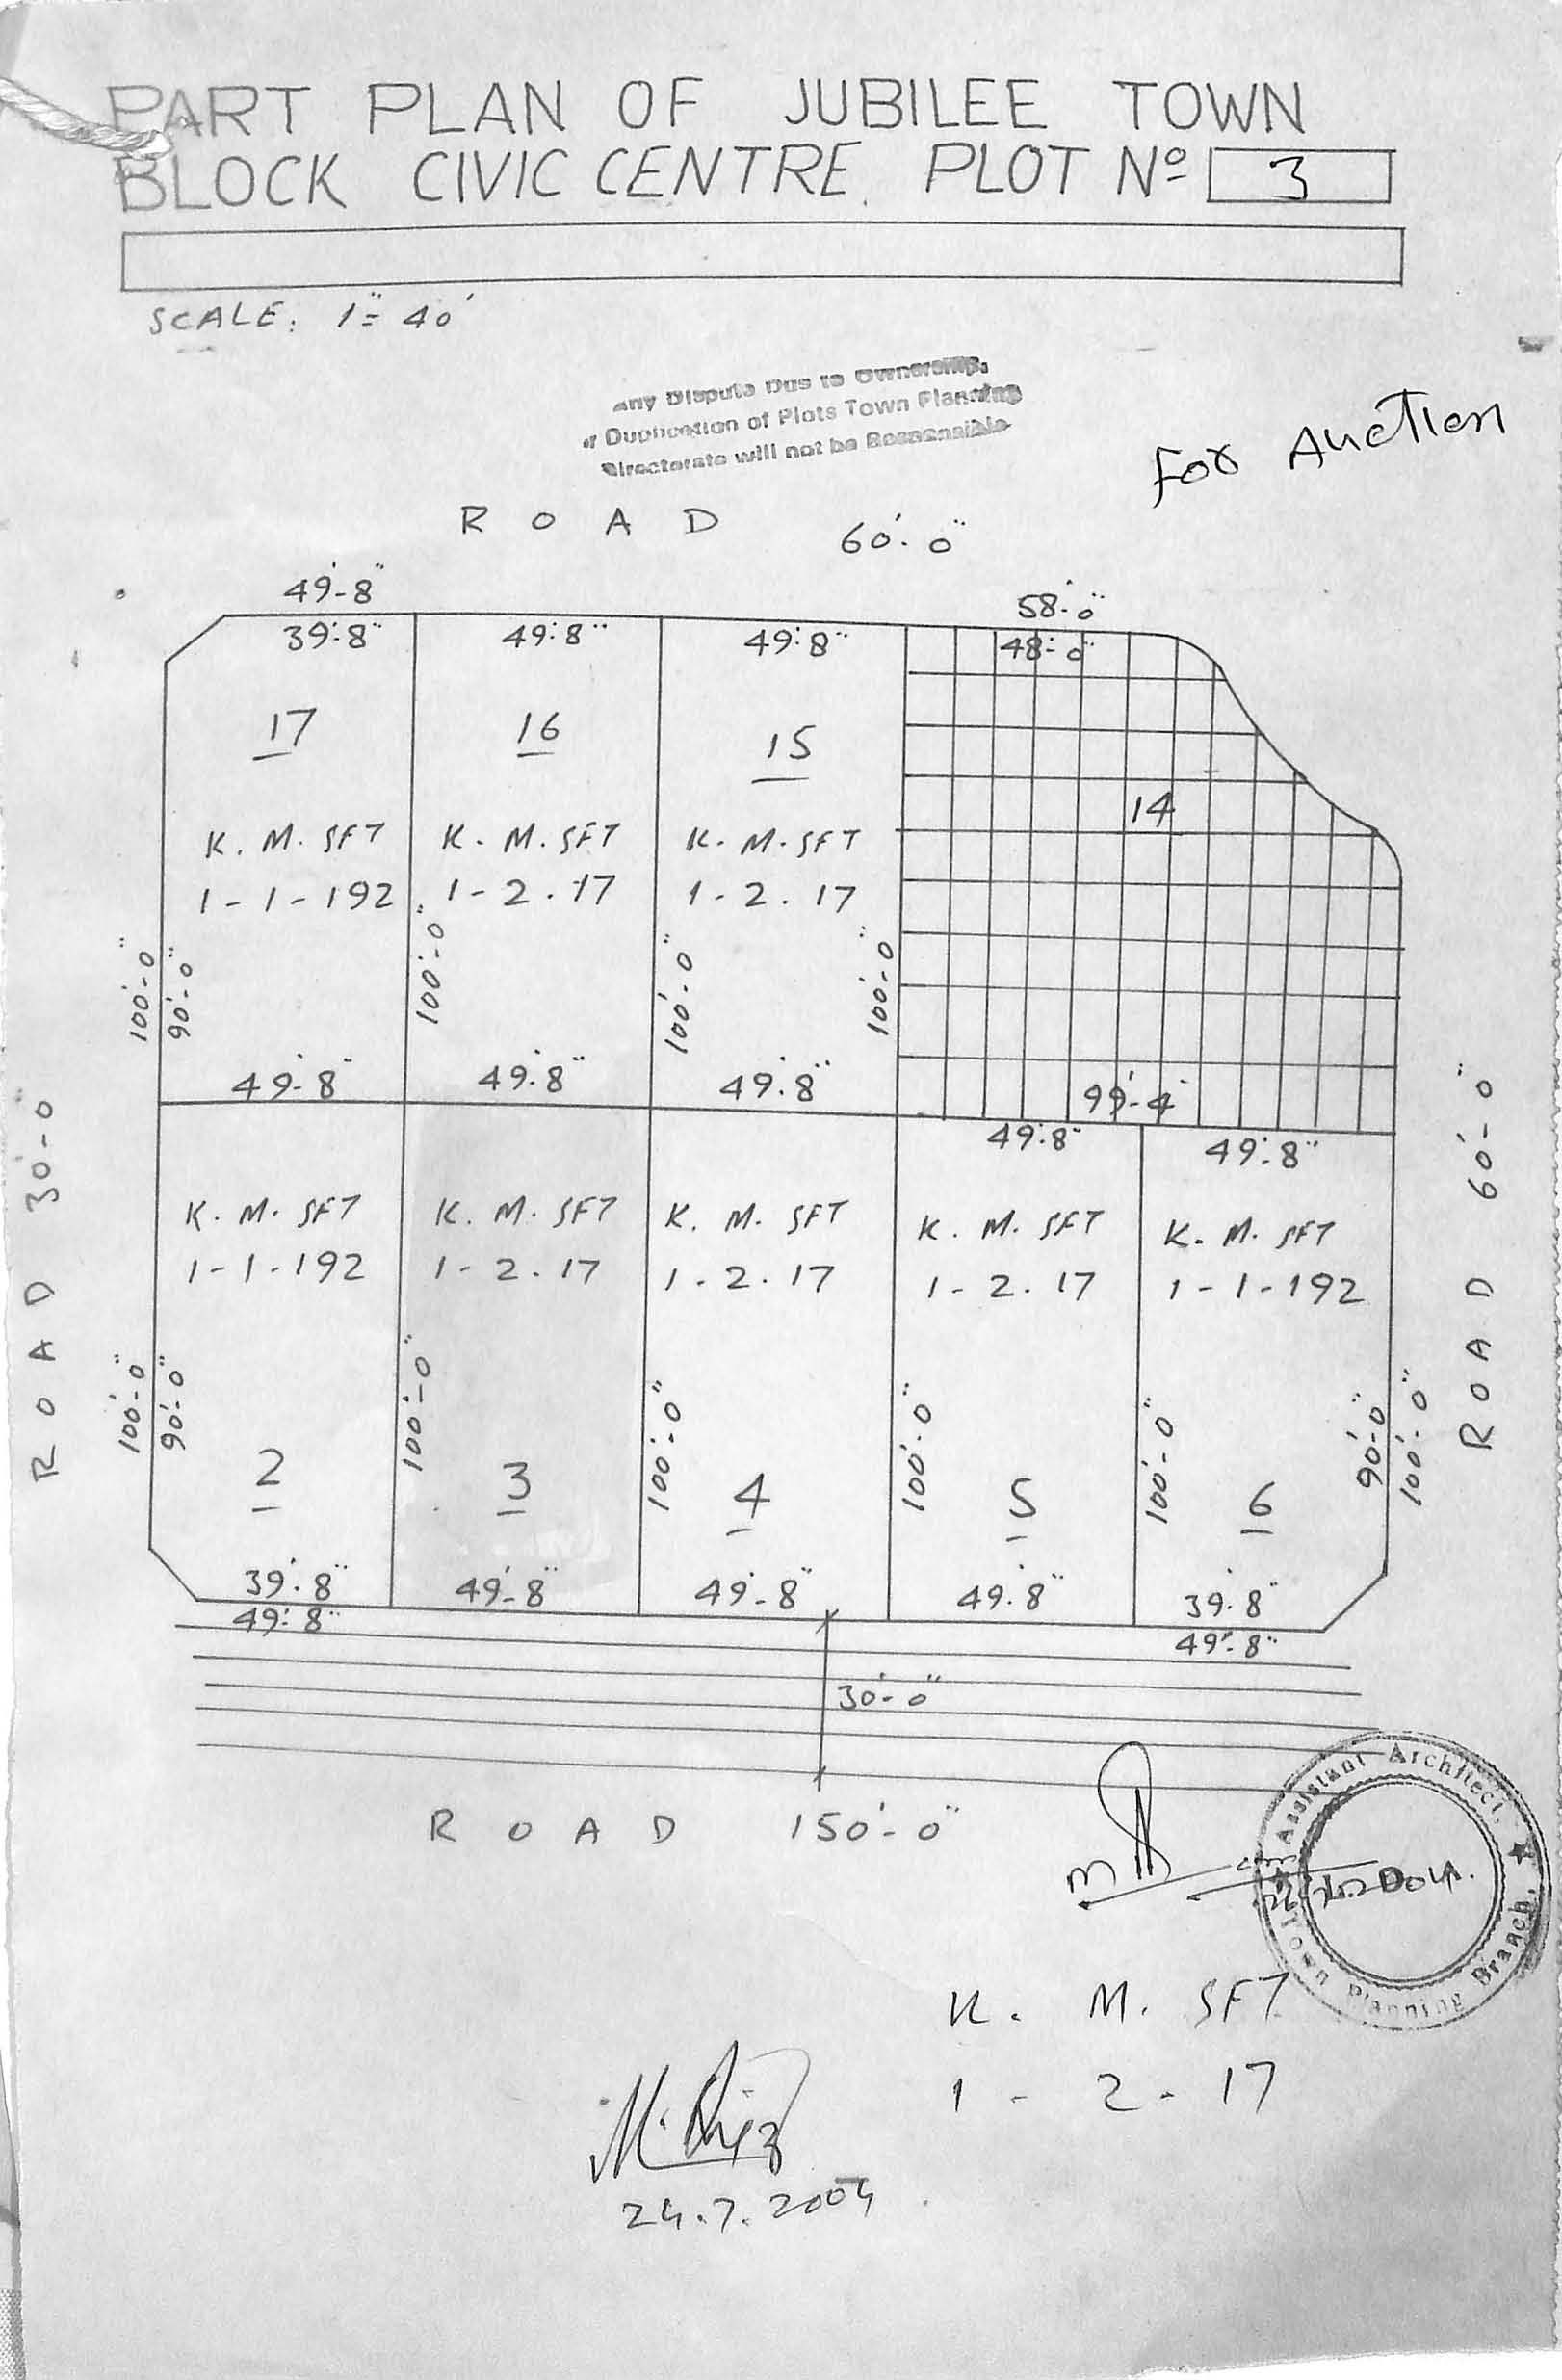 PART PLAN OF JUBILEE TOWN
BLOCK CIVIC CENTRE. PLOT Nº 3
SCALE: 1"= 40'
Any Dispute Due to Ownership,
or Duplication of Plots Town Planning
Directorate will not be Responsible
For Auction
ROAD 60'-0"
49'-8"
58'-0"
39'-8"
49'-8"
49'-8"
48'-0"
17
16
15
14
K. M. SFT
K. M. SFT
K. M. SFT
1-1-192
1-2.17
1-2.17
100'-0"
90'-0"
100'-0"
100'-0"
100'-0"
49'-8"
49'-8"
49'-8"
99'-4"
49'-8"
49'-8"
ROAD 30'-0"
ROAD 60'-0"
K. M. SFT
K. M. SFT
K. M. SFT
K. M. SFT
K. M. SFT
1-1-192
1-2.17
1-2.17
1-2.17
1-1-192
100'-0"
90'-0"
100'-0"
100'-0"
100'-0"
100'-0"
90'-0"
100'-0"
2
3
4
5
6
39'-8"
49'-8"
49'-8"
49'-8"
39'-8"
49'-8"
49'-8"
30'-0"
ROAD 150'-0"
Assistant Architect,
Town Planning Branch,
L.D.A.
K. M. SFT
1 - 2 - 17
24.7.2004